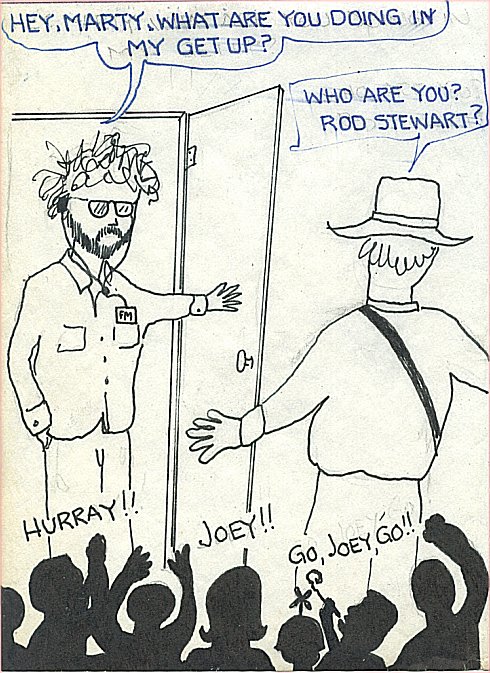 HEY, MARTY, WHAT ARE YOU DOING IN
MY GET UP?
WHO ARE YOU?
ROD STEWART?
FM
HURRAY!!
JOEY!!
GO, JOEY, GO!!